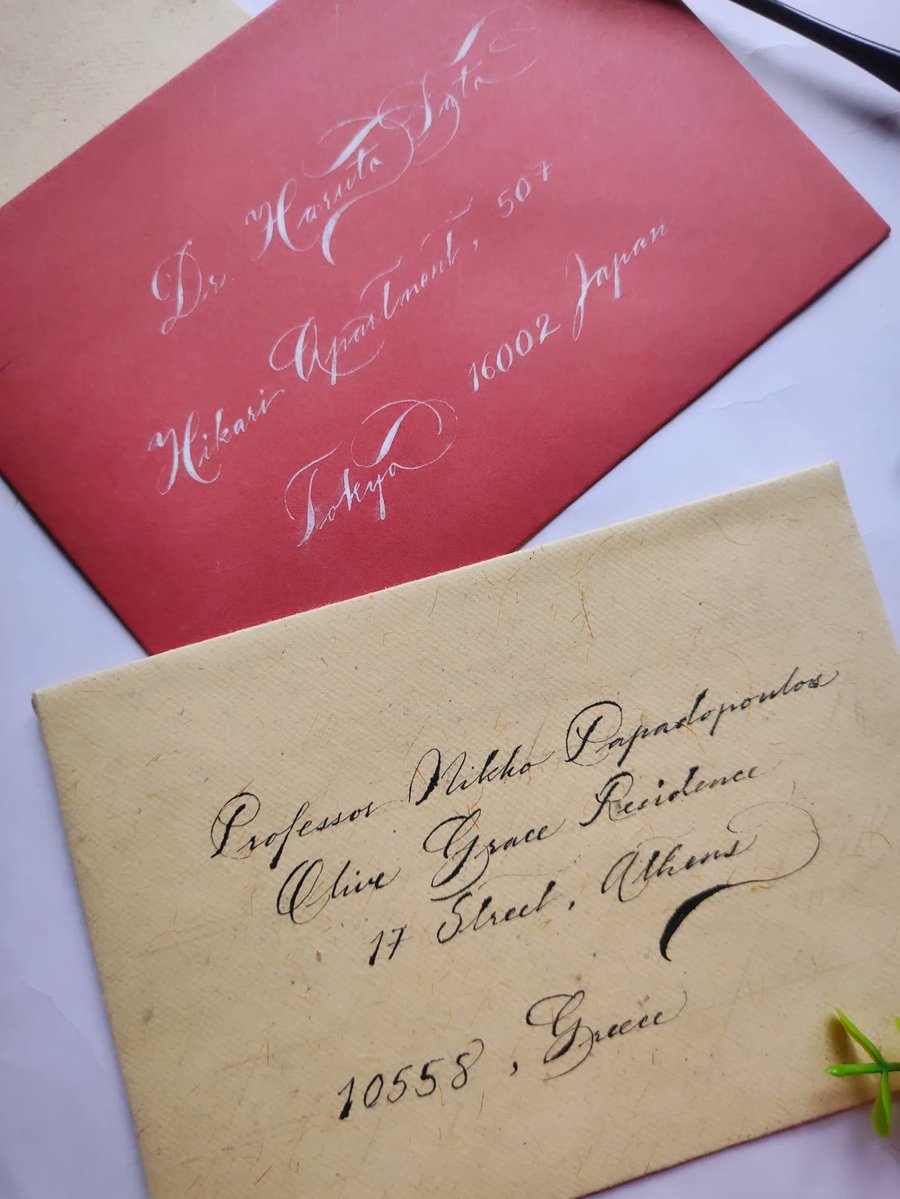 Dr. Haruto Sato
Hikari Apartment, 507
Tokyo 16002 Japan
Professor Nikko Papadopoulos
Olive Grace Residence
17 Street, Athens
10558, Greece